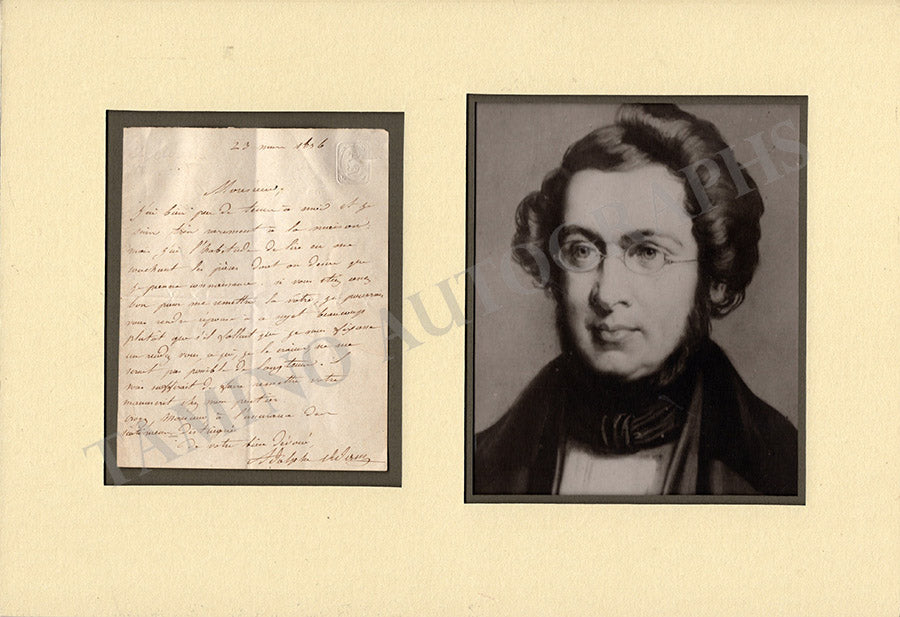 23 mars 1856
Monsieur,
J'ai bien peu de temps à moi et je
suis très rarement à la maison
mais j'ai l'habitude de lire en me
couchant les pièces dont on désire que
je prenne connaissance si vous étiez assez
bon pour me remettre la vôtre, je pourrais
vous rendre réponse à ce sujet beaucoup
plutôt que s'il fallait que je vous fixasse
un rendez vous ce qui, je le crains ne me
serait pas possible de longtemps. Il
vous suffirait de faire remettre votre
manuscrit chez mon portier
Croyez Monsieur à l'assurance des
sentimens distingués
de votre bien dévoué
Adolphe Adam
TAMINO AUTOGRAPHS